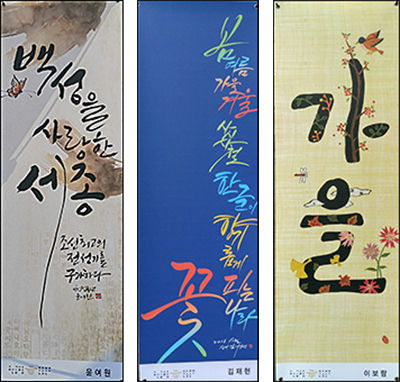 백성을
사랑한
세종
조선 최고의
전성기를
구가하다
윤여원
봄
여름
가을
겨울
한글이
꽃
피는
나라
김재현
가
을
이보람